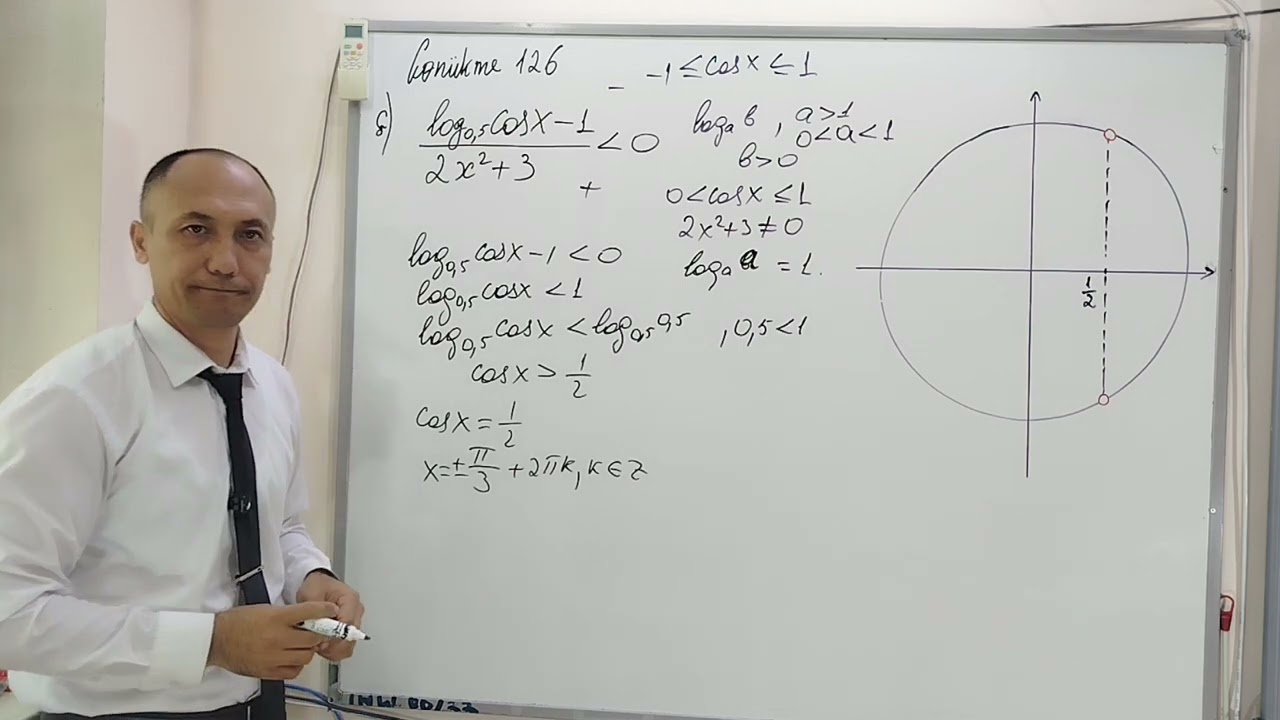 Gönükme 126
-1 ≤ cosx ≤ 1
б) (log₀,₅cosx-1)/(2x²+3) < 0
-
+
logₐb , a>1
0<a<1
b>0
0<cosx ≤1
2x²+3≠0
logₐa =1.
log₀,₅cosx-1<0
log₀,₅cosx<1
log₀,₅cosx<log₀,₅0,5 , 0,5<1
cosx> 1/2
cosx= 1/2
x=± π/3 +2πk, k∈z
1/2